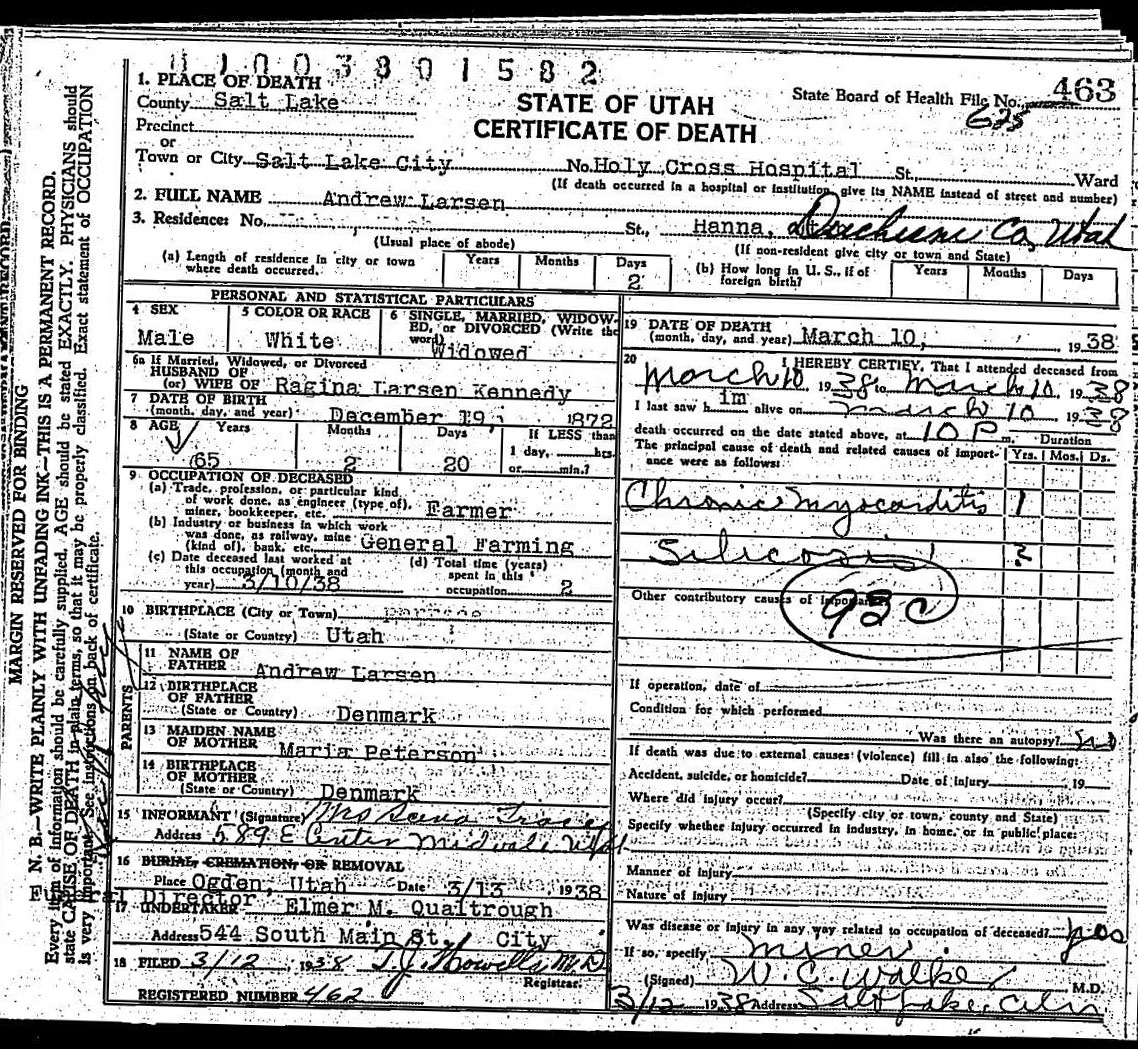 01003801582
1. PLACE OF DEATH
County Salt Lake
Precinct
or
Town or City Salt Lake City No. Holy Cross Hospital St., Ward
STATE OF UTAH
CERTIFICATE OF DEATH
State Board of Health File No. 463
635
(If death occurred in a hospital or institution, give its NAME instead of street and number)
2. FULL NAME Andrew Larsen
3. Residence: No. St., Hanna, Duchesne Co, Utah
(Usual place of abode) (If non-resident give city or town and State)
(a) Length of residence in city or town where death occurred. Years Months Days 2
(b) How long in U. S., if of foreign birth? Years Months Days
PERSONAL AND STATISTICAL PARTICULARS
4 SEX Male
5 COLOR OR RACE White
6 SINGLE, MARRIED, WIDOWED, or DIVORCED (Write the word) Widowed
6a If Married, Widowed, or Divorced
HUSBAND OF
(or) WIFE OF Ragina Larsen Kennedy
7 DATE OF BIRTH
(month, day, and year) December 19, 1872
8 AGE Years 65 Months 2 Days 20 If LESS than 1 day, hrs. or min.?
9 OCCUPATION OF DECEASED
(a) Trade, profession, or particular kind of work done, as engineer (type of), miner, bookkeeper, etc. Farmer
(b) Industry or business in which work was done, as railway, mine (kind of), bank, etc. General Farming
(c) Date deceased last worked at this occupation (month and year) 3/10/38
(d) Total time (years) spent in this occupation 2
10 BIRTHPLACE (City or Town)
(State or Country) Utah
PARENTS
11 NAME OF FATHER Andrew Larsen
12 BIRTHPLACE OF FATHER
(State or Country) Denmark
13 MAIDEN NAME OF MOTHER Maria Peterson
14 BIRTHPLACE OF MOTHER
(State or Country) Denmark
15 INFORMANT (Signature) Mrs
Address 589 E Center Midvale Utah
16 BURIAL, CREMATION, OR REMOVAL
Place Ogden, Utah Date 3/13 1938
Director
17 UNDERTAKER Elmer M. Quaitrough
Address 544 South Main St., City
18 FILED 3/12, 1938 T.J. Howells M.D.
Registrar.
REGISTERED NUMBER 462
19 DATE OF DEATH
(month, day, and year) March 10, 1938
20 I HEREBY CERTIFY, That I attended deceased from
March 10, 1938 to March 10, 1938
I last saw him alive on March 10 1938
death occurred on the date stated above, at 10 P m. Duration
The principal cause of death and related causes of importance were as follows: Yrs. Mos. Ds.
Chronic Myocarditis 1
Silicosis ?
Other contributory causes of importance
93c
If operation, date of
Condition for which performed
Was there an autopsy? no
If death was due to external causes (violence) fill in also the following:
Accident, suicide, or homicide? Date of injury 19
Where did injury occur?
(Specify city or town, county and State)
Specify whether injury occurred in industry, in home, or in public place:
Manner of injury
Nature of injury
Was disease or injury in any way related to occupation of deceased? yes
If so, specify Miner
(Signed) W. C. Walker M.D.
3/12 1938 Address Salt Lake City
MARGIN RESERVED FOR BINDING
N. B.—WRITE PLAINLY WITH UNFADING INK—THIS IS A PERMANENT RECORD.
Every item of information should be carefully supplied. AGE should be stated EXACTLY. PHYSICIANS should
state CAUSE OF DEATH in plain terms, so that it may be properly classified. Exact statement of OCCUPATION
is very important. See instructions on back of certificate.